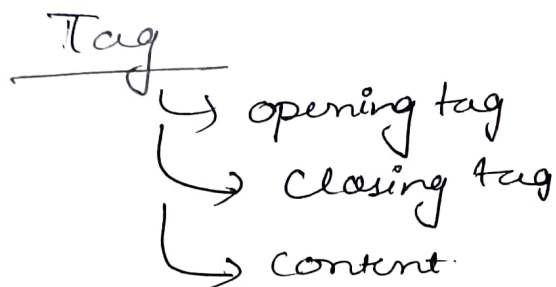 Tag
opening tag
Closing tag
Content.